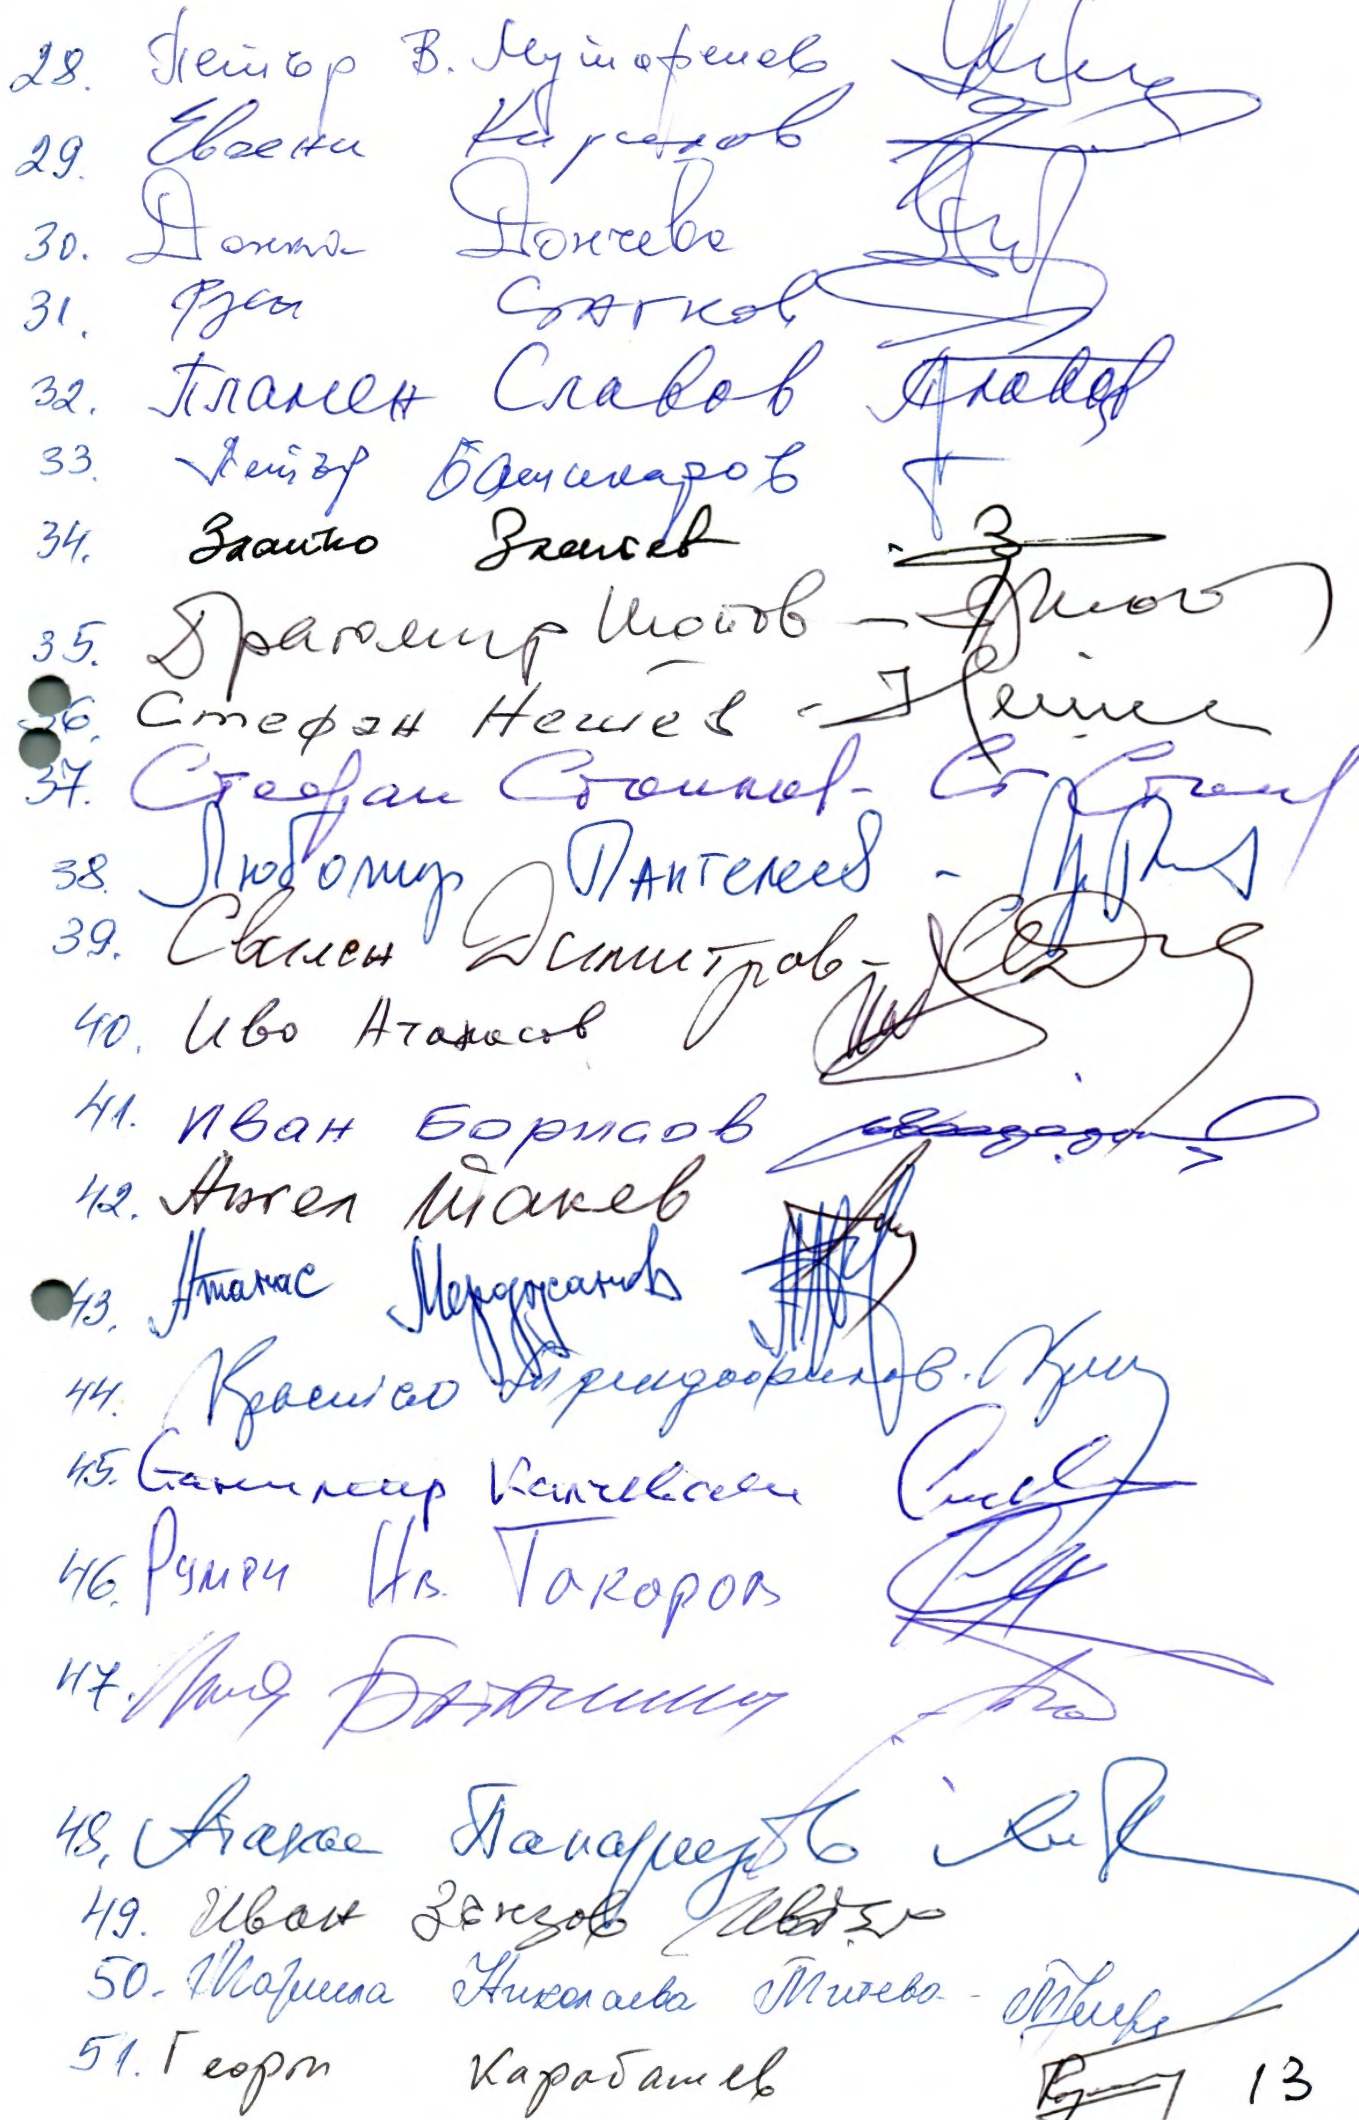 28. Петър В. Мутафчиев
29. Евгени Кирилов
30. Донка Дончева
31. Руси Статков
32. Пламен Славов
33. Петър Башикаров
34. Златко Златев
35. Драгомир Шопов -
36. Стефан Нешев -
37. Стефан Стоилов -
38. Любомир Пантелеев -
39. Свилен Димитров -
40. Иво Атанасов
41. Иван Борисов
42. Ангел Такев
43. Атанас Мерджанов
44. Кръстьо Трендафилов.
45. Станимир Калчевски
46. Румен Ив. Такоров
47. Илия Баташки
48. Атанас Папаризов
49. Иван Зянзов
50. Николаева Митева -
51. Георги Карабашев
13